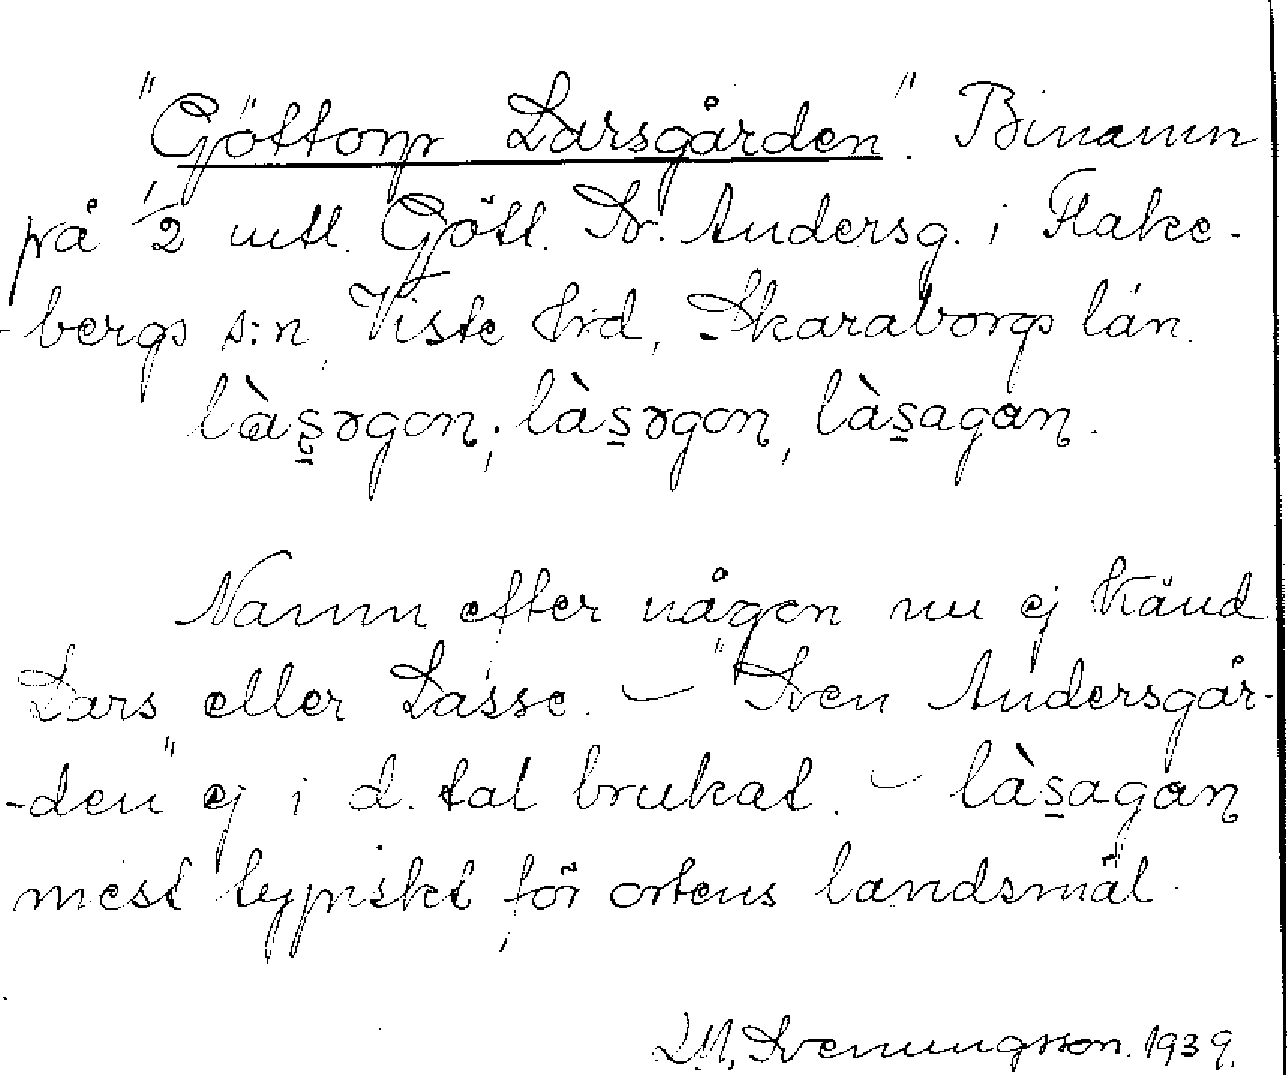 "Göttorp Larsgården". Binamn
på 1/2 mtl. Gött. Sv. Andersg. i Flake-
-bergs s:n, Viste hrd, Skaraborgs län.
làs̱ǝgon; làs̱ǝgon, làs̱agan.
Namn efter någon nu ej känd
Lars eller Lasse. - "Sven Andersgår-
-den" ej i d. tal brukat. - làs̱agan
mest typiskt för ortens landsmål.
L.M. Svenungsson. 1939.